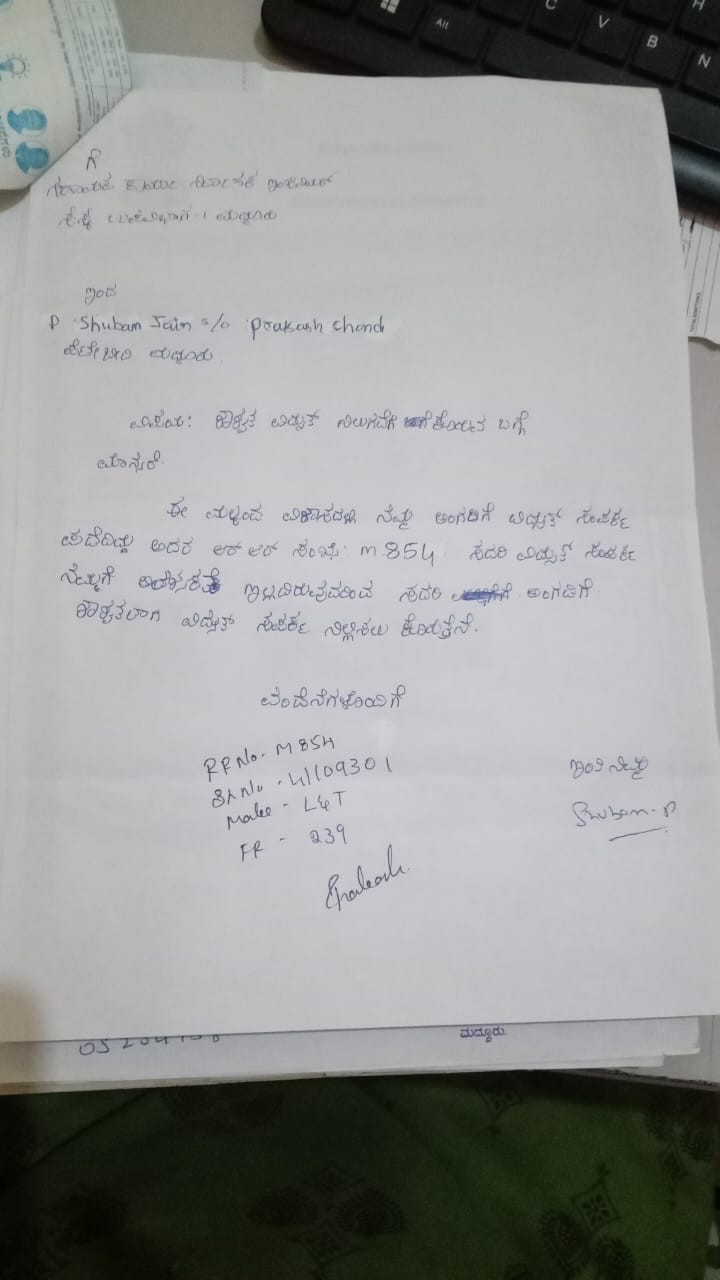 ಗೆ
ಸಹಾಯಕ ಕಾರ್ಯ ನಿರ್ವಾಹಕ ಇಂಜಿನಿಯರ್
ಉಪವಿಭಾಗ-1 ಮದ್ದೂರು
ಇಂದ
P Shubam Jain s/o Prakash Chand
ಪೇಟೇಬೀದಿ ಮದ್ದೂರು.
ವಿಷಯ: ಶಾಶ್ವತ ವಿದ್ಯುತ್ ನಿಲುಗಡೆಗೆ ಕೋರುವ ಬಗ್ಗೆ
ಮಾನ್ಯರೆ.
ಈ ಮೇಲ್ಕಂಡ ವಿಳಾಸದಲ್ಲಿ ನಮ್ಮ ಅಂಗಡಿಗೆ ವಿದ್ಯುತ್ ಸಂಪರ್ಕ
ಪಡೆದಿದ್ದು ಅದರ ಆರ್ ಆರ್ ಸಂಖ್ಯೆ: M 854. ಸದರಿ ವಿದ್ಯುತ್ ಸಂಪರ್ಕ
ನಮ್ಮಗೆ ಅವಶ್ಯಕತೆ ಇಲ್ಲದಿರುವುದರಿಂದ ಸದರಿ ಅಂಗಡಿಗೆ
ಶಾಶ್ವತವಾಗಿ ವಿದ್ಯುತ್ ಸಂಪರ್ಕ ನಿಲ್ಲಿಸಲು ಕೋರುತ್ತೇನೆ.
ವಂದನೆಗಳೊಂದಿಗೆ
RR No - M854
Sl No - 4109301
Make - L&T
FR - 239
Prakash.
ಇಂತಿ ನಿಮ್ಮ
Shubam. P
ಮದ್ದೂರು.
All
C
V
B
N